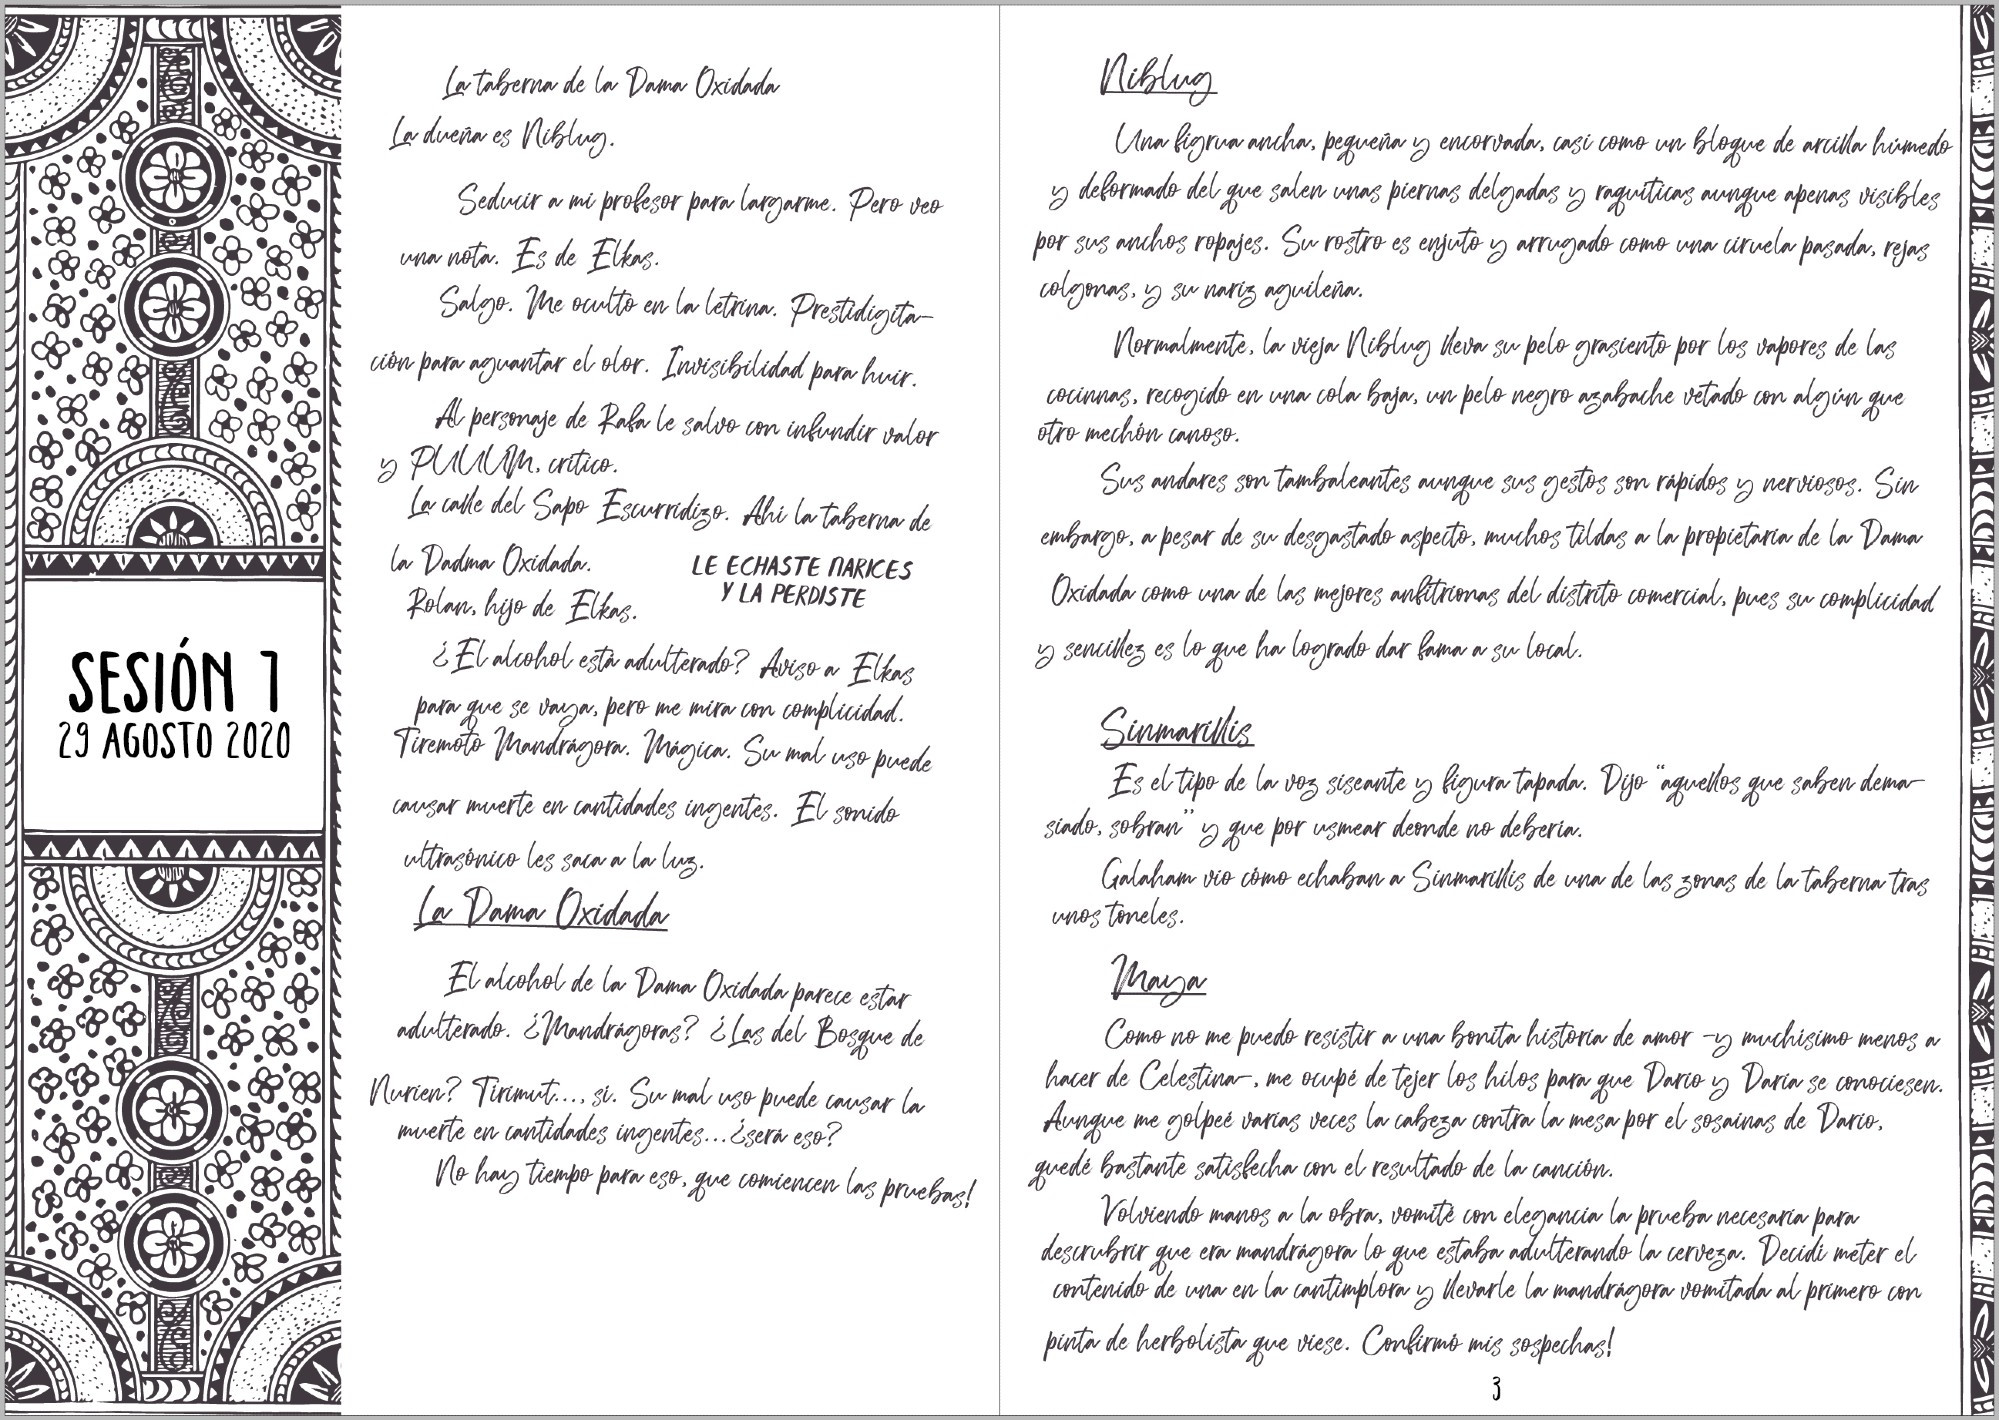 SESIÓN 1
29 AGOSTO 2020
La taberna de la Dama Oxidada
La dueña es Niblug.
Seducir a mi profesor para largarme. Pero veo
una nota. Es de Elkas.
Salgo. Me oculto en la letrina. Prestidigita-
ción para aguantar el olor. Invisibilidad para huir.
Al personaje de Rafa le salvo con infundir valor
y PUUUM, crítico.
La calle del Sapo Escurridizo. Ahí la taberna de
la Dadma Oxidada.
LE ECHASTE NARICES
Y LA PERDISTE
Rolan, hijo de Elkas.
¿El alcohol está adulterado? Aviso a Elkas
para que se vaya, pero me mira con complicidad.
Tiremoto Mandrágora. Mágica. Su mal uso puede
causar muerte en cantidades ingentes. El sonido
ultrasónico les saca a la luz.
La Dama Oxidada
El alcohol de la Dama Oxidada parece estar
adulterado. ¿Mandrágoras? ¿Las del Bosque de
Nurien? Tirimut..., sí. Su mal uso puede causar la
muerte en cantidades ingentes...¿será eso?
No hay tiempo para eso, que comiencen las pruebas!
Niblug
Una figrua ancha, pequeña y encorvada, casi como un bloque de arcilla húmedo
y deformado del que salen unas piernas delgadas y raquíticas aunque apenas visibles
por sus anchos ropajes. Su rostro es enjuto y arrugado como una ciruela pasada, rejas
colgonas, y su nariz aguileña.
Normalmente, la vieja Niblug lleva su pelo grasiento por los vapores de las
cocinnas, recogido en una cola baja, un pelo negro azabache vetado con algún que
otro mechón canoso.
Sus andares son tambaleantes aunque sus gestos son rápidos y nerviosos. Sin
embargo, a pesar de su desgastado aspecto, muchos tildas a la propietaria de la Dama
Oxidada como una de las mejores anfitrionas del distrito comercial, pues su complicidad
y sencillez es lo que ha logrado dar fama a su local.
Sinmarillis
Es el tipo de la voz siseante y figura tapada. Dijo “aquellos que saben dema-
siado, sobran” y que por usmear deonde no debería.
Galaham vio cómo echaban a Sinmarillis de una de las zonas de la taberna tras
unos toneles.
Maya
Como no me puedo resistir a una bonita historia de amor -y muchísimo menos a
hacer de Celestina-, me ocupé de tejer los hilos para que Darío y Daría se conociesen.
Aunque me golpeé varias veces la cabeza contra la mesa por el sosainas de Darío,
quedé bastante satisfecha con el resultado de la canción.
Volviendo manos a la obra, vomité con elegancia la prueba necesaria para
descrubrir que era mandrágora lo que estaba adulterando la cerveza. Decidí meter el
contenido de una en la cantimplora y llevarle la mandrágora vomitada al primero con
pinta de herbolista que viese. Confirmó mis sospechas!
3